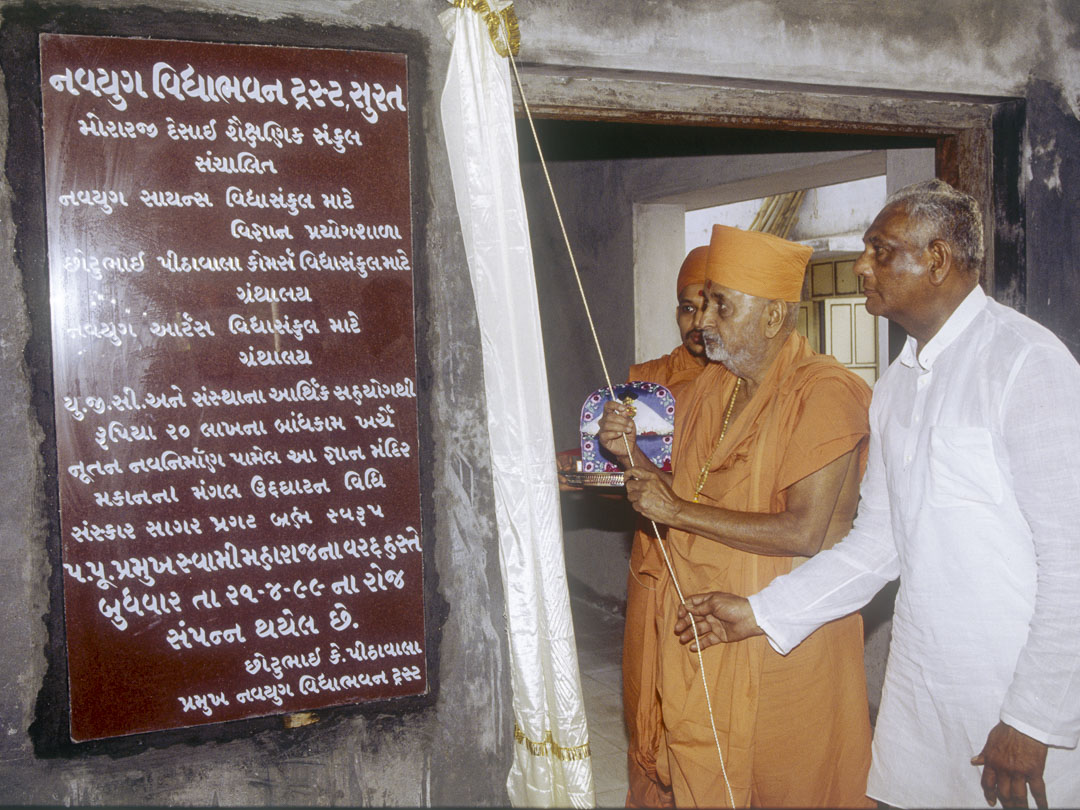 નવયુગ વિદ્યાભવન ટ્રસ્ટ,સુરત
મોરારજી દેસાઈ શૈક્ષણિક સંકુલ
સંચાલિત
નવયુગ સાયન્સ વિદ્યાસંકુલ માટે
વિજ્ઞાન પ્રયોગશાળા
છોટુભાઈ પીઠાવાલા કોમર્સ વિદ્યાસંકુલ માટે
ગ્રંથાલય
નવયુગ આર્ટસ વિદ્યાસંકુલ માટે
ગ્રંથાલય
યુ.જી.સી.અને સંસ્થાના આર્થિક સહયોગથી
રૂપિયા ૨૦ લાખના બાંધકામ ખર્ચે
નૂતન નવનિર્માણ પામેલ આ જ્ઞાન મંદિર
મકાનના મંગલ ઉદઘાટન વિધિ
સંસ્કાર સાગર પ્રગટ બ્રહ્મ સ્વરૂપ
પ.પૂ.પ્રમુખસ્વામી મહારાજના વરદ્દ હસ્તે
બુધવાર તા ૨૧-૪-૯૯ ના રોજ
સંપન્ન થયેલ છે.
છોટુભાઈ કે.પીઠાવાલા
પ્રમુખ નવયુગ વિદ્યાભવન ટ્રસ્ટ